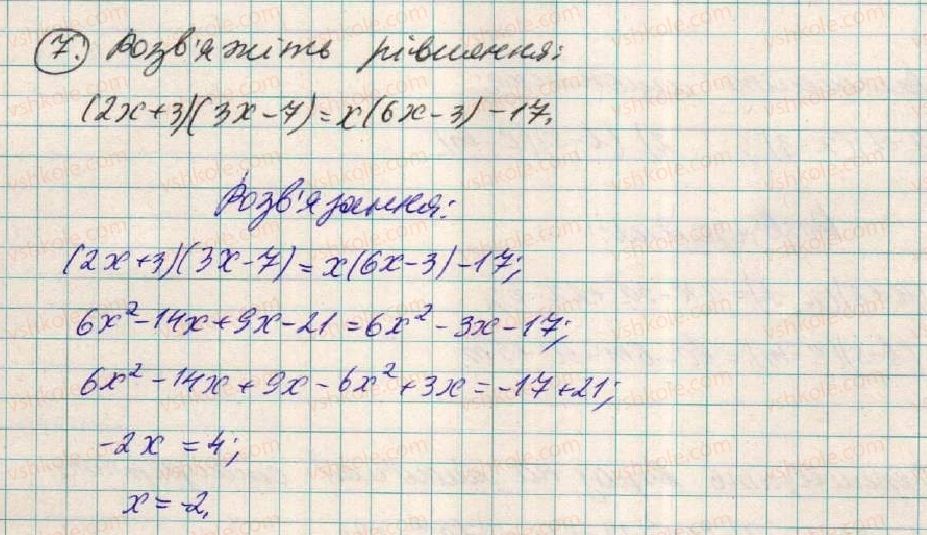 7. Розв'яжіть рівняння:
(2x+3)(3x-7)=x(6x-3)-17.
Розв'язання:
(2x+3)(3x-7)=x(6x-3)-17;
6x²-14x+9x-21=6x²-3x-17;
6x²-14x+9x-6x²+3x=-17+21;
-2x=4;
x=-2.